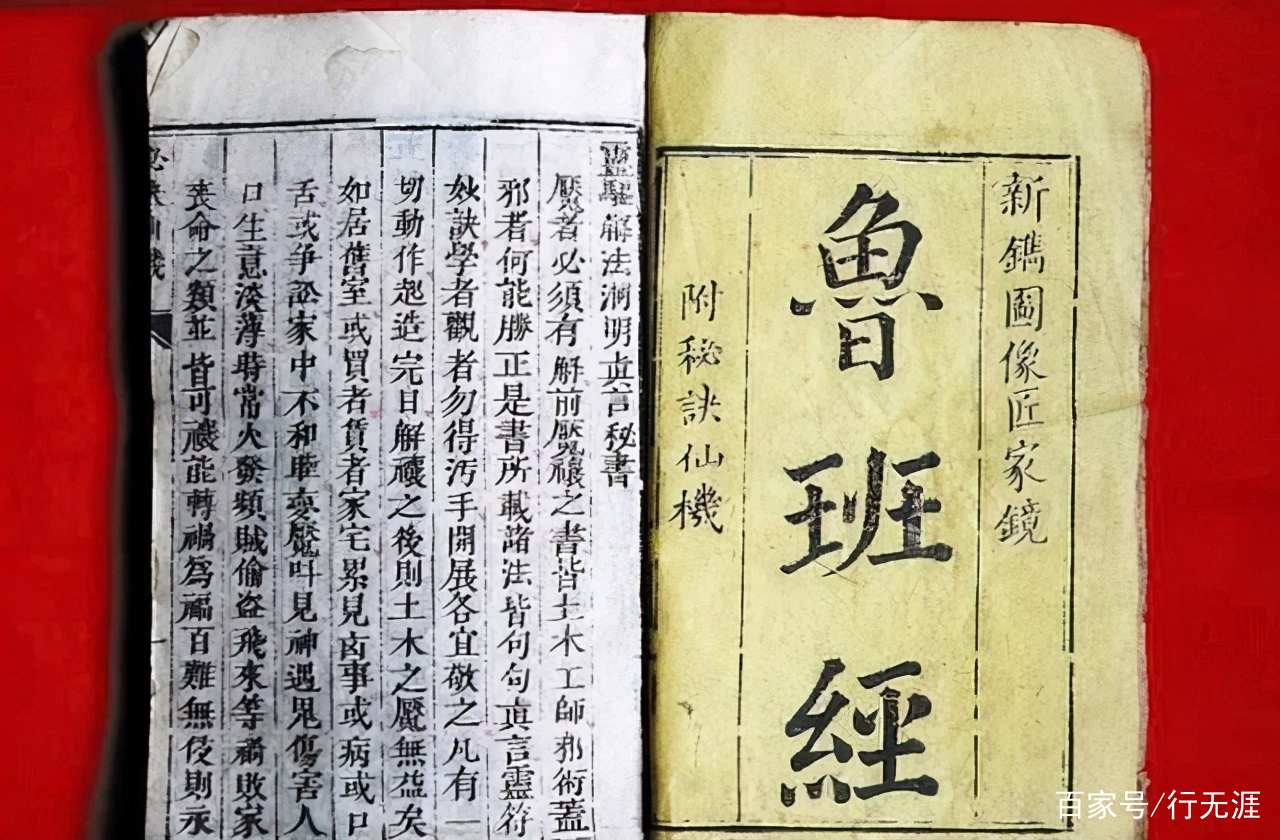 新鐫圖像匠家鏡
魯班經
附秘訣仙機
靈驅解法洞明真言秘書
魘者必須有解前魘禳之書皆土木工師邪術蓋
邪者何能勝正是書所載諸法皆句句真言靈符
妙訣學者觀者勿得汚手開展各宜敬之凡有一
切動作起造完日解禳之後則土木之魘無益矣
如居舊室或買者賃者家宅累見凶事或病或口
舌或爭訟家中不和睦夢魘叫見神遇鬼傷害人
口生意淡薄時常火發類賊偷盗飛來等禍敗家
喪命之類並皆可禳能轉禍為福百難無侵則永
百家号/行无涯